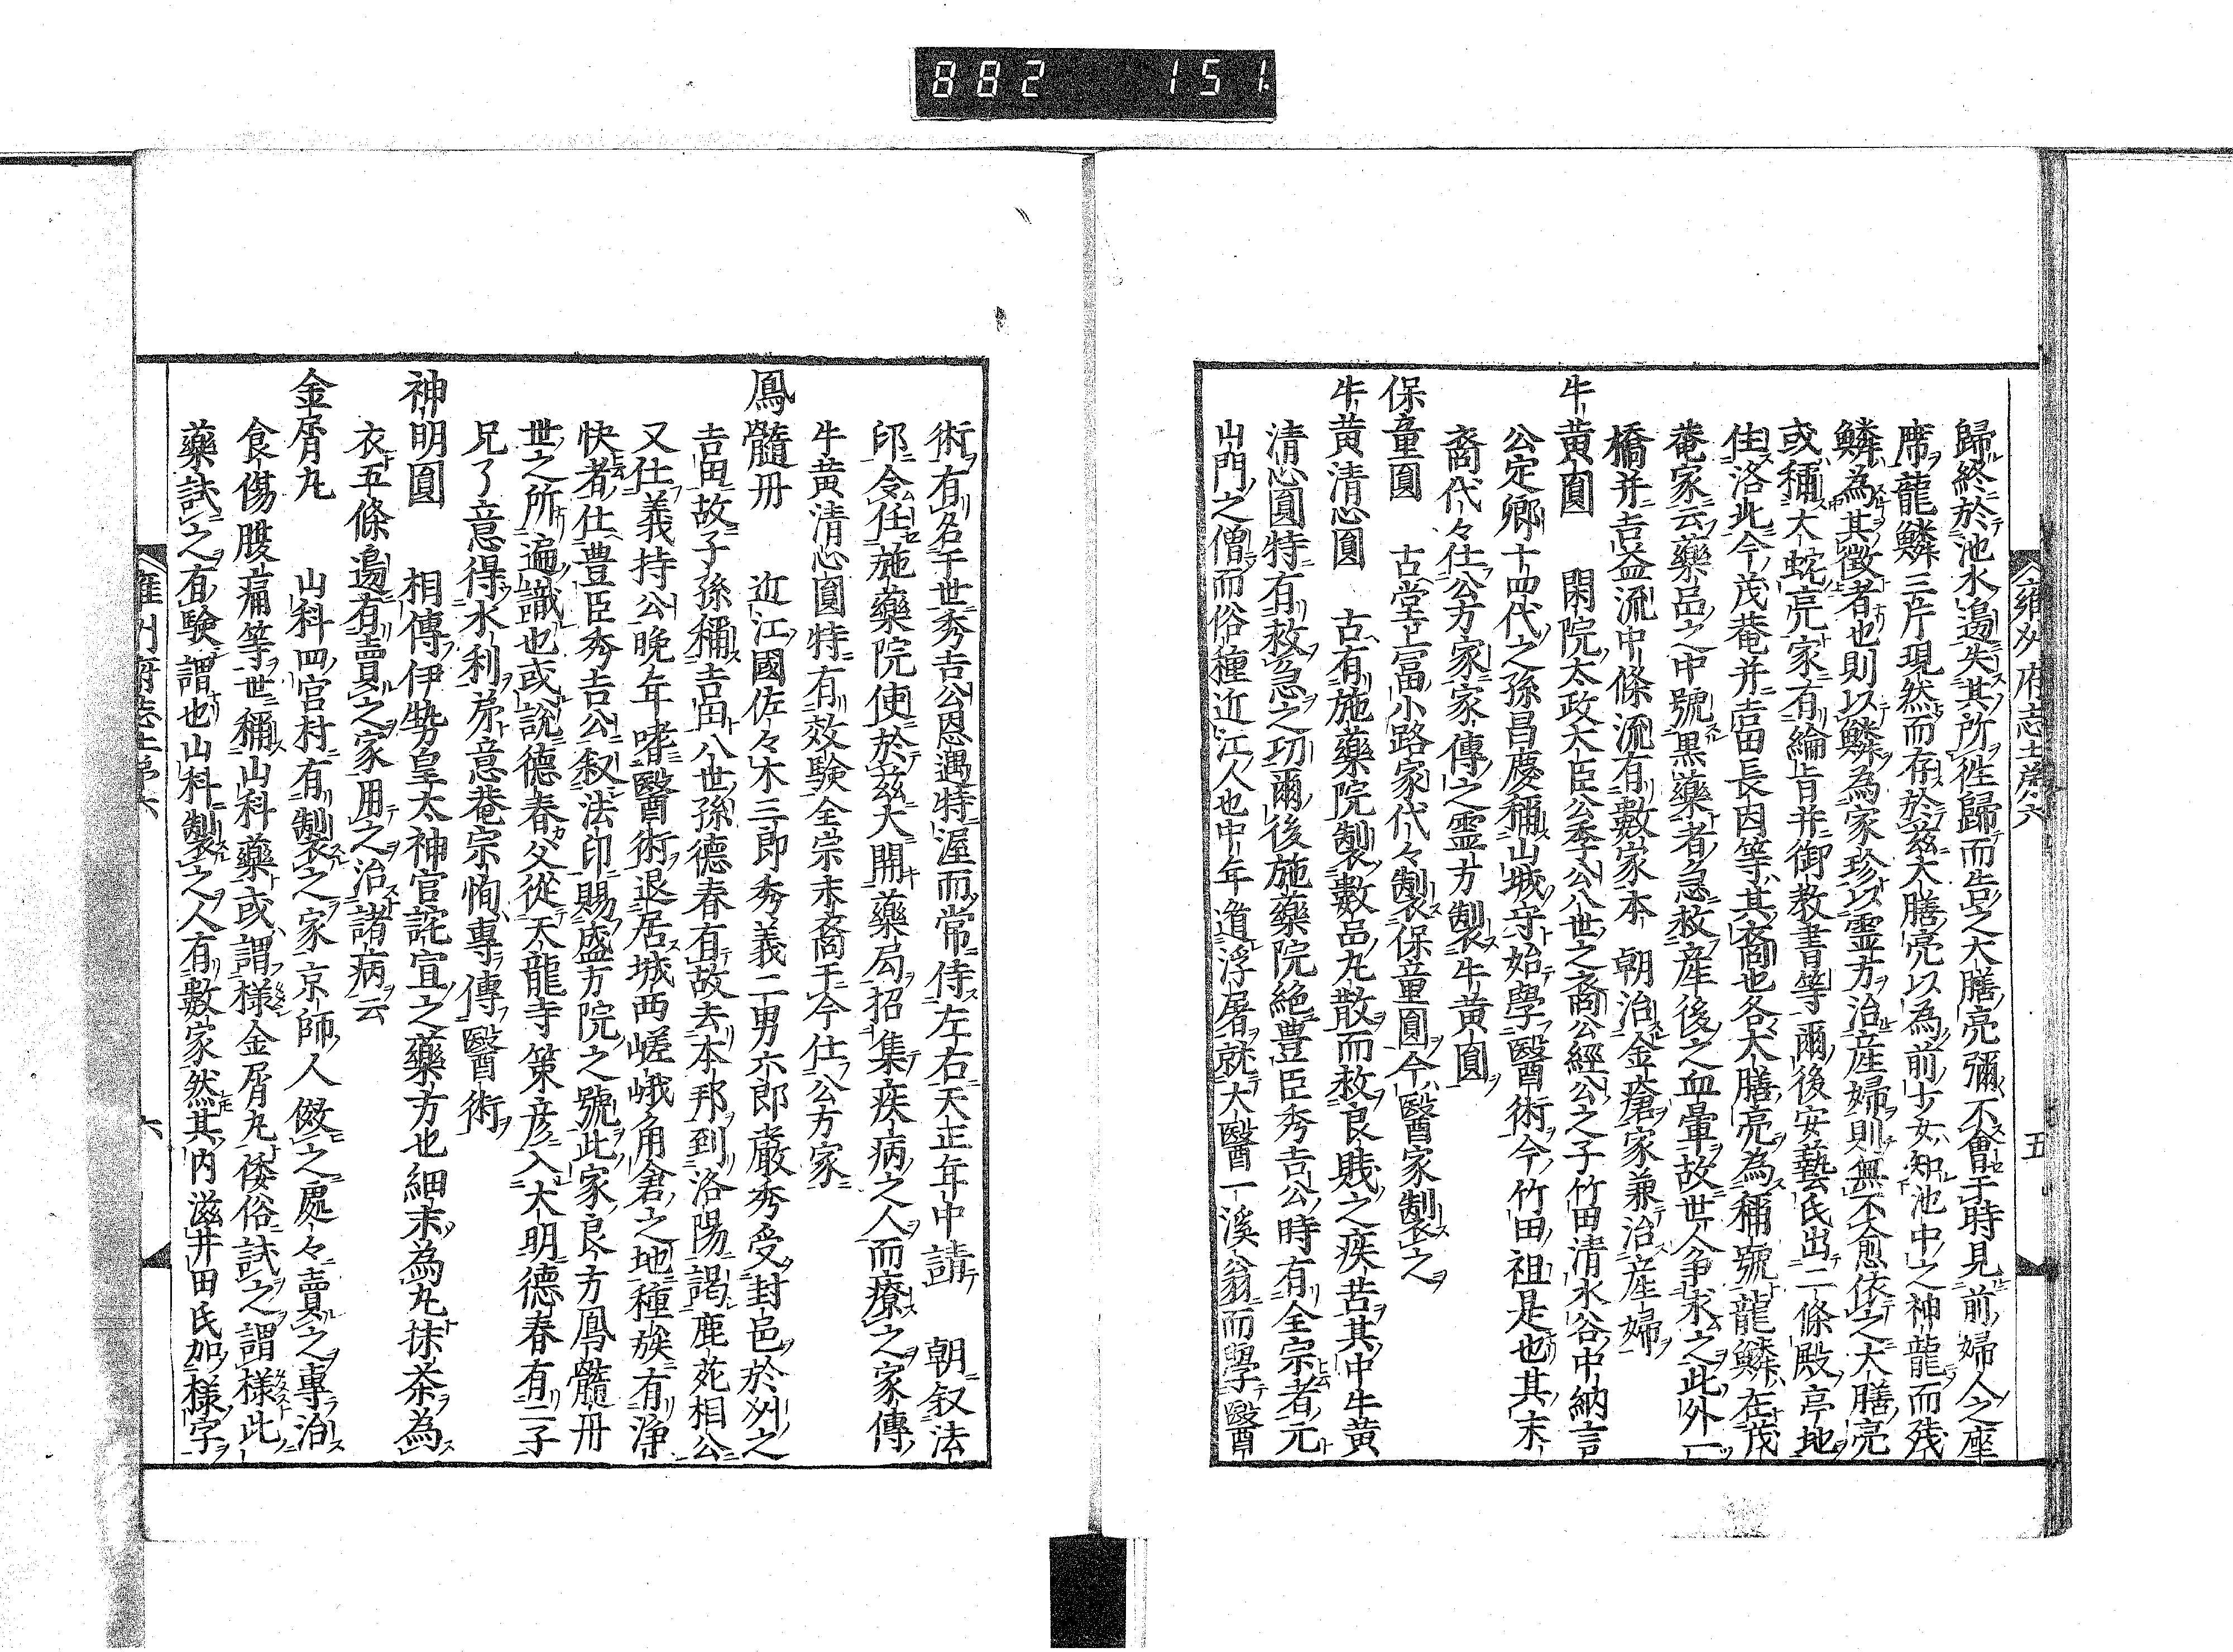 882 151
雍州府志土産六 五
歸終於池水邊失其所徃歸而告之大膳亮彌不會于時見前婦人之座
席龍鱗三片現然而存於茲大膳亮以為前女知池中之神龍而殘
鱗為其徴者也則以鱗為家珍以霊方治産婦則無不愈依之大膳亮
或稱大蛇亮家有綸旨并御教書等爾後安藝氏出二條殿亭地
住洛北今茂菴并吉田長因等其裔也各大膳亮為稱號龍鱗在茂
菴家云藥品之中號黒藥者急救産後之血暈故世人争求之此外一
橋并吉益流中條流有數家本 朝治金瘡家兼治産婦
牛黄圓 閑院太政大臣公季公八世之裔公經公之子竹田清水谷中納言
公定卿十四代之孫昌慶稱山城守始學醫術今竹田祖是也其末
裔代々仕公方家家傳之霊方製牛黄圓
保童圓 古堂上富小路家代々製保童圓今醫家製之
牛黄清心圓 古有施藥院製數品丸散而救良賎之疾苦其中牛黄
清心圓特有救急之功爾後施藥院絶豊臣秀吉公時有全宗者元
山門之僧而俗種近江人也中年遁浮屠就大醫一溪翁而學醫
術有名于世秀吉公恩遇特渥而常侍左右天正年中請 朝叙法
印令任施藥院使於茲大開藥局招集疾病之人而療之家傳
牛黄清心圓特有效験全宗末裔于今仕公方家
鳳髓丹 近江國佐々木三郎秀義二男六郎嚴秀受封邑於州之
吉田故子孫稱吉田八世孫德春有故去本邦到洛陽謁鹿苑相公
又仕義持公晩年嗜醫術退居城西嵯峨角倉之地種族有淨
快者仕豊臣秀吉公叙法印賜盛方院之號此家良方鳳髓丹
世之所遍識也或説德春父從天龍寺策彦入大明德春有二子
兄了意得水利弟意菴宗恂專傳醫術
神明圓 相傳伊勢皇太神宮託宣之藥方也細末為丸抹茶為
衣五條邊有賣之家用之治諸病云
金屑丸 山科四宮村有製之家京師人傚之處々賣之專治
食傷腹痛等世稱山科藥或謂様金屑丸倭俗試之謂様此
藥試之有験謂也山科製之人有數家然其内滋井田氏加様字
雍州府志土産六 六